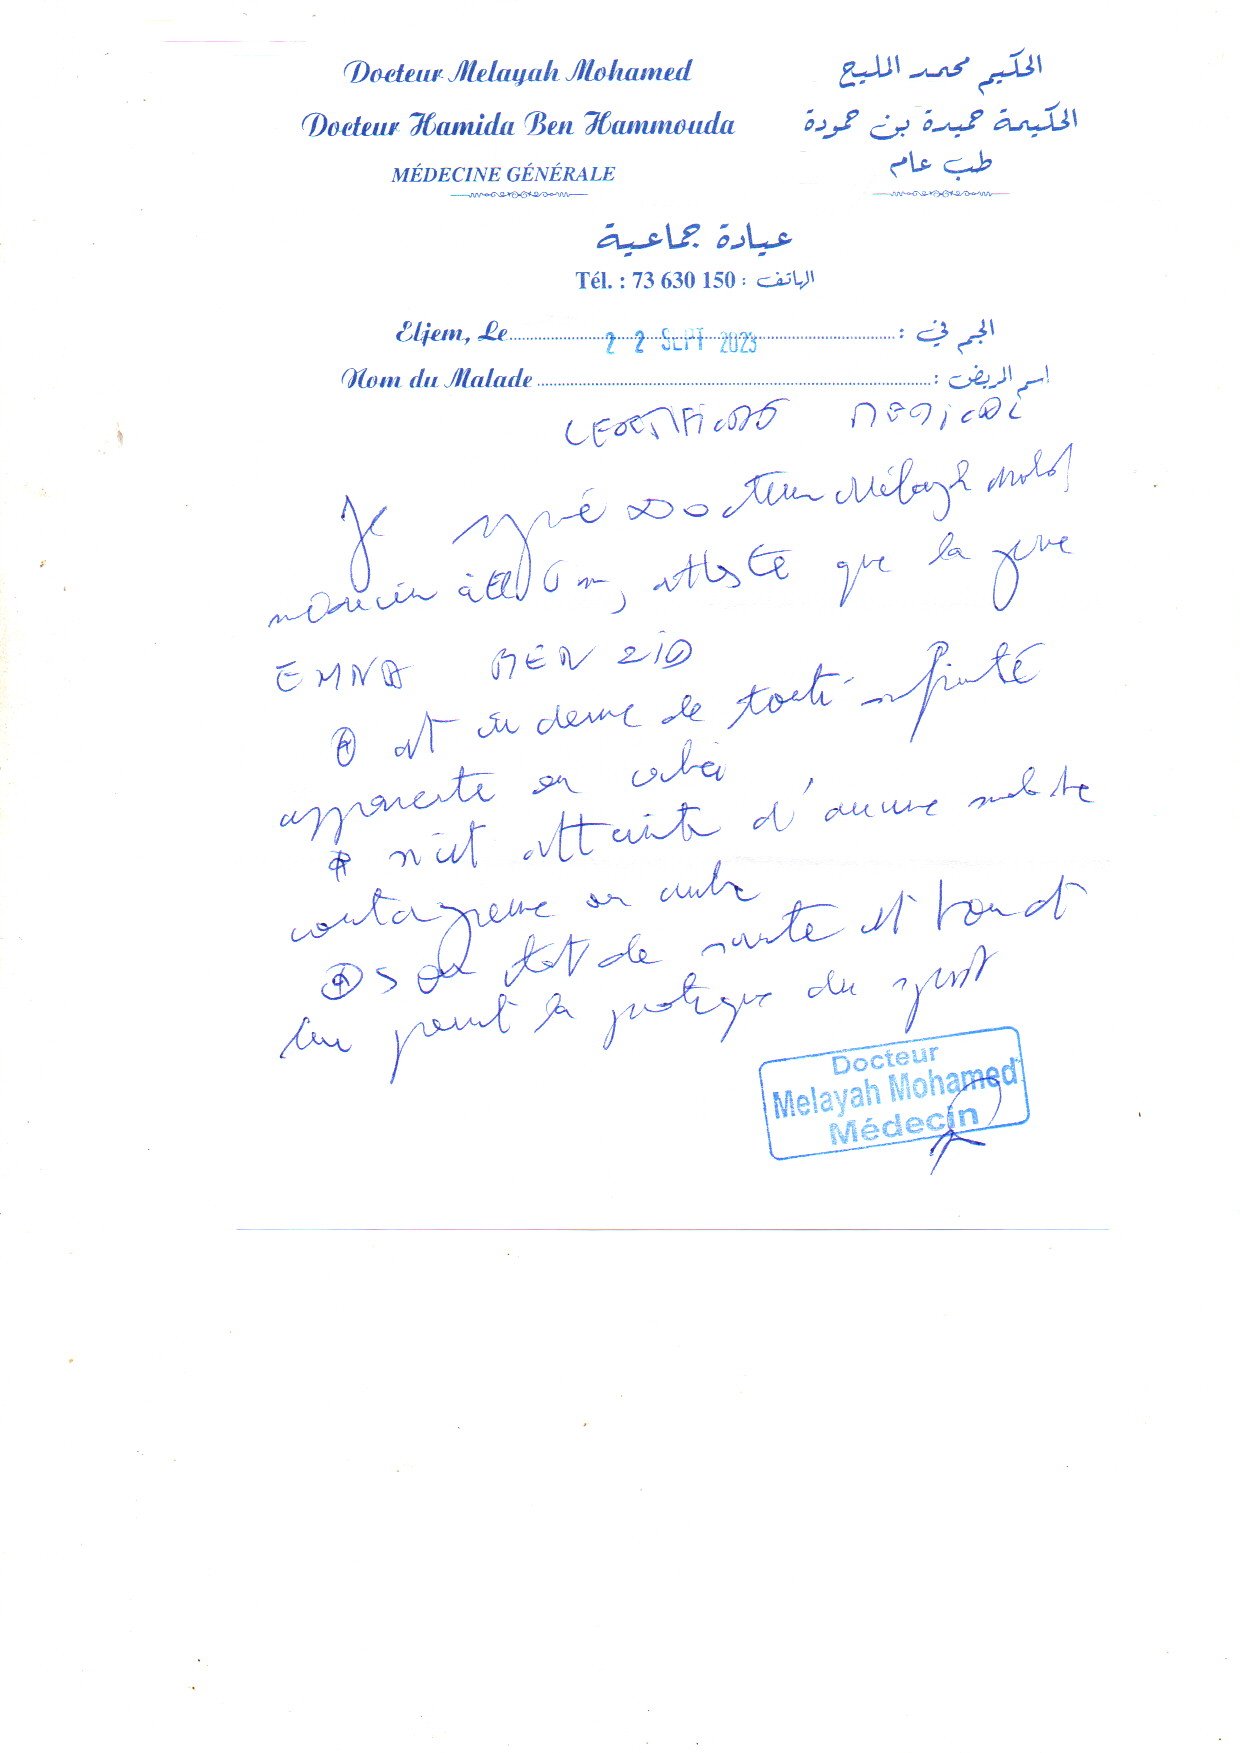 Docteur Melayah Mohamed
الحكيم محمد المليح
Docteur Hamida Ben Hammouda
الحكيمة حميدة بن حمودة
MÉDECINE GÉNÉRALE
طب عام
عيادة جماعية
Tél. : 73 630 150 : الهاتف
Eljem, Le 22 SEPT 2023 الجم في :
Nom du Malade اسم المريض :
CERTIFICAT MEDICAL
Je signé Docteur Mélayah Mohd
médecin à El Jem, atteste que la jeune
EMNA BEN ZID
est indemne de toute infirmité
apparente ou cachée
n'est atteinte d'aucune maladie
contagieuse ou autre
Son état de santé est bon et
lui permet la pratique du sport
Docteur
Melayah Mohamed
Médecin